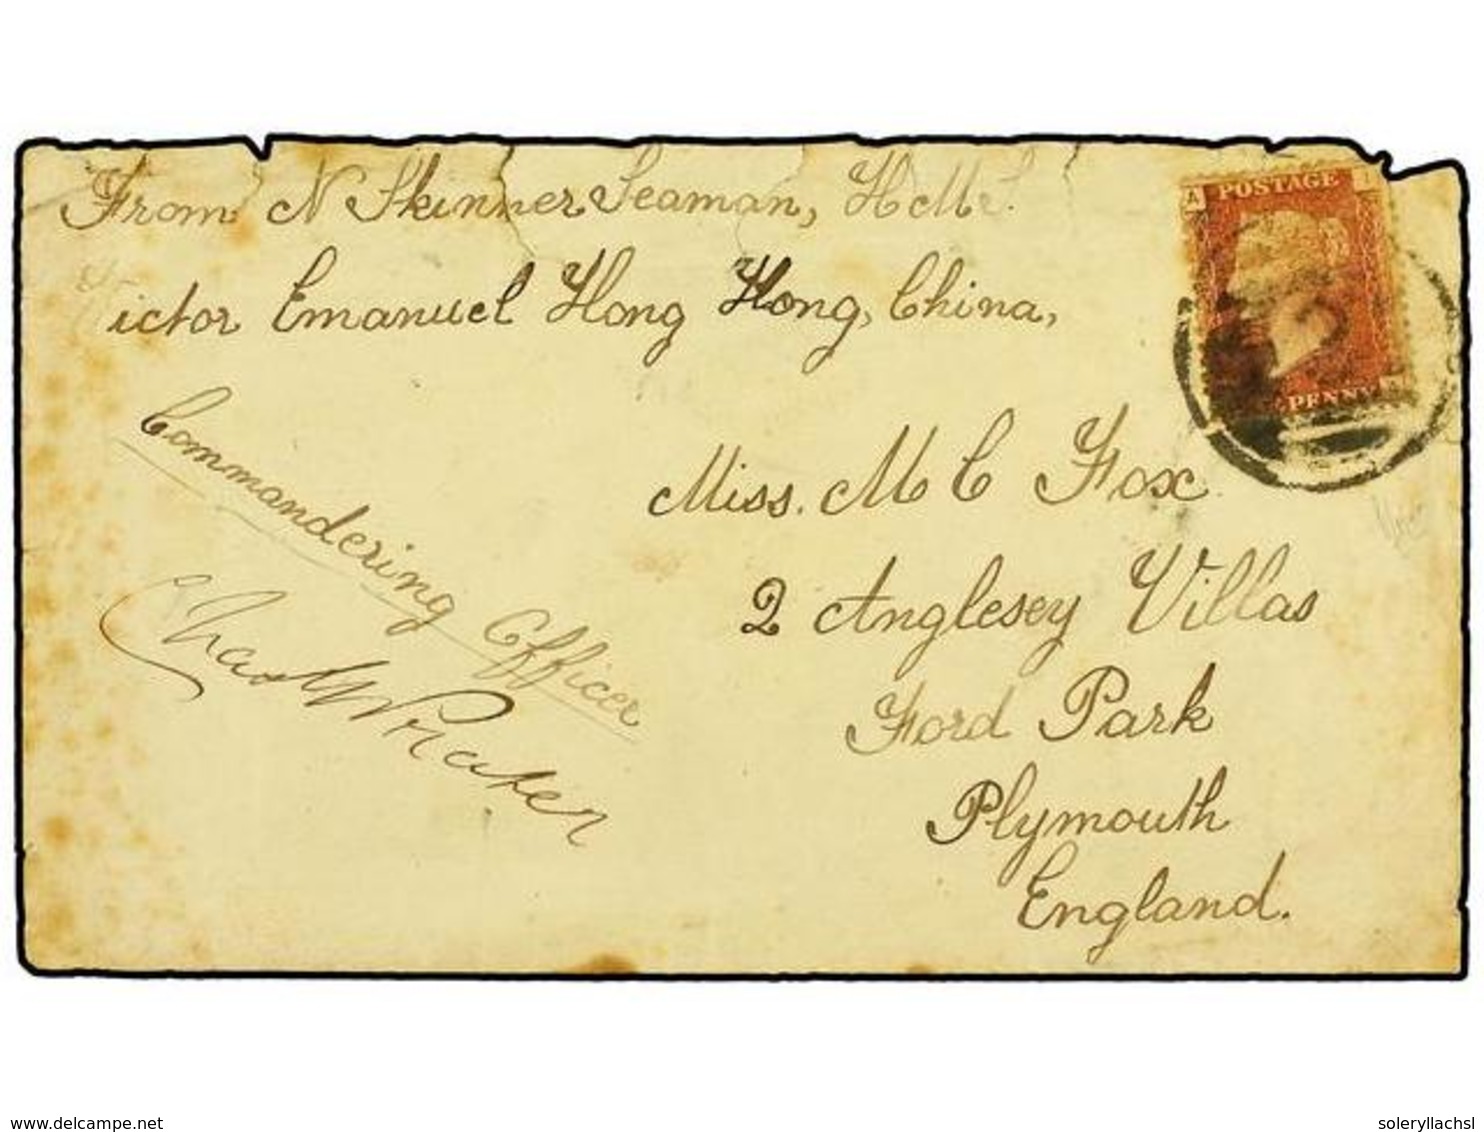 From N Skinner Seaman, H M S.
ictor Emanuel Hong Hong, China,
Commandering Officer
Miss. M C Fox
2 Anglesey Villas
Ford Park
Plymouth
England.
A POSTAGE
PENNY
delcampe.net
soleryllachsl